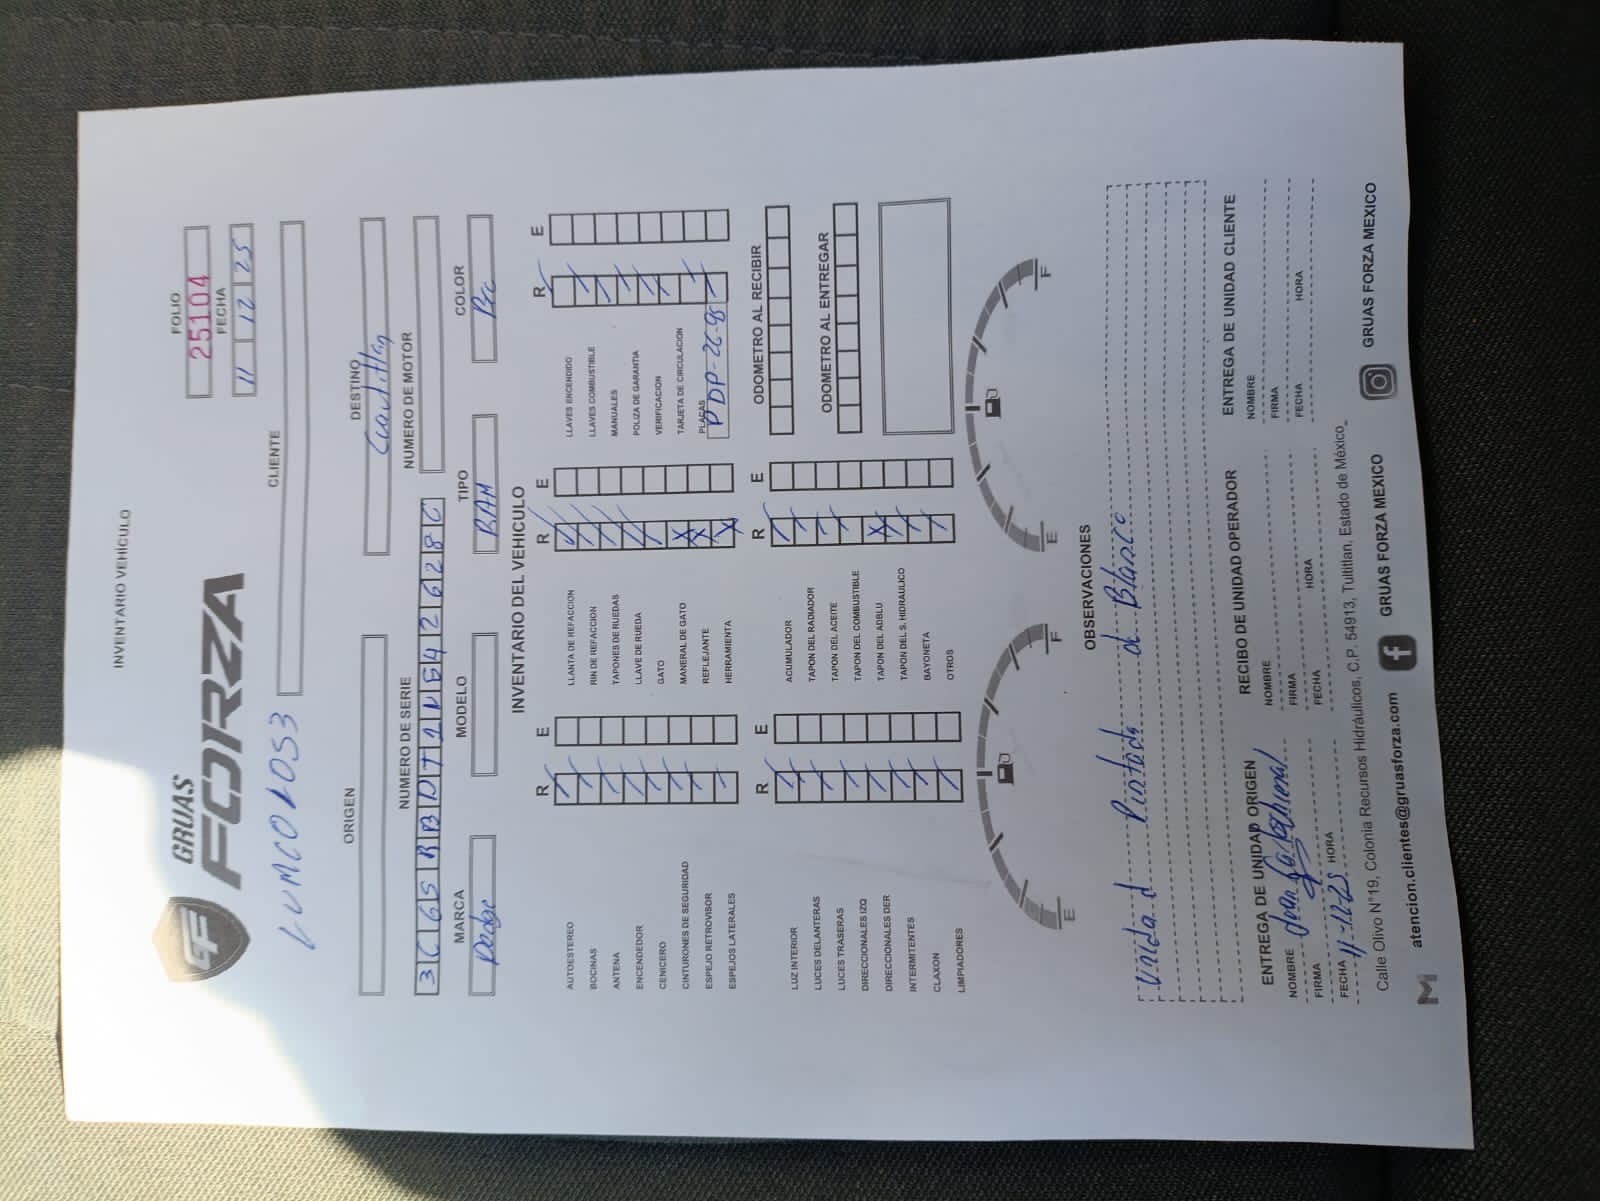 INVENTARIO VEHÍCULO
GRUAS
FORZA
FOLIO
25104
FECHA
11 12 25
CLIENTE
ORIGEN
DESTINO
Cuautitlan
NUMERO DE SERIE
NUMERO DE MOTOR
MARCA
MODELO
TIPO
COLOR
Dodge
RAM
INVENTARIO DEL VEHICULO
R E R E R E
AUTOESTEREO
BOCINAS
ANTENA
ENCENDEDOR
CENICERO
CINTURONES DE SEGURIDAD
ESPEJO RETROVISOR
ESPEJOS LATERALES
LLANTA DE REFACCION
RIN DE REFACCION
TAPONES DE RUEDAS
LLAVE DE RUEDA
GATO
MANERAL DE GATO
REFLEJANTE
HERRAMIENTA
LLAVES ENCENDIDO
LLAVES COMBUSTIBLE
MANUALES
POLIZA DE GARANTIA
VERIFICACION
TARJETA DE CIRCULACION
PLACAS
R E R E
LUZ INTERIOR
LUCES DELANTERAS
LUCES TRASERAS
DIRECCIONALES IZQ
DIRECCIONALES DER
INTERMITENTES
CLAXON
LIMPIADORES
ACUMULADOR
TAPON DEL RADIADOR
TAPON DEL ACEITE
TAPON DEL COMBUSTIBLE
TAPON DEL ADBLU
TAPON DEL S. HIDRAULICO
BAYONETA
OTROS
ODOMETRO AL RECIBIR
ODOMETRO AL ENTREGAR
E F E F
OBSERVACIONES
Pintada de Blanco
ENTREGA DE UNIDAD ORIGEN
NOMBRE
FIRMA
FECHA 11-12-25 HORA
RECIBO DE UNIDAD OPERADOR
NOMBRE
FIRMA
FECHA HORA
ENTREGA DE UNIDAD CLIENTE
NOMBRE
FIRMA
FECHA HORA
Calle Olivo N°19, Colonia Recursos Hidráulicos, C.P. 54913, Tultitlan, Estado de México.
atencion.clientes@gruasforza.com GRUAS FORZA MEXICO GRUAS FORZA MEXICO